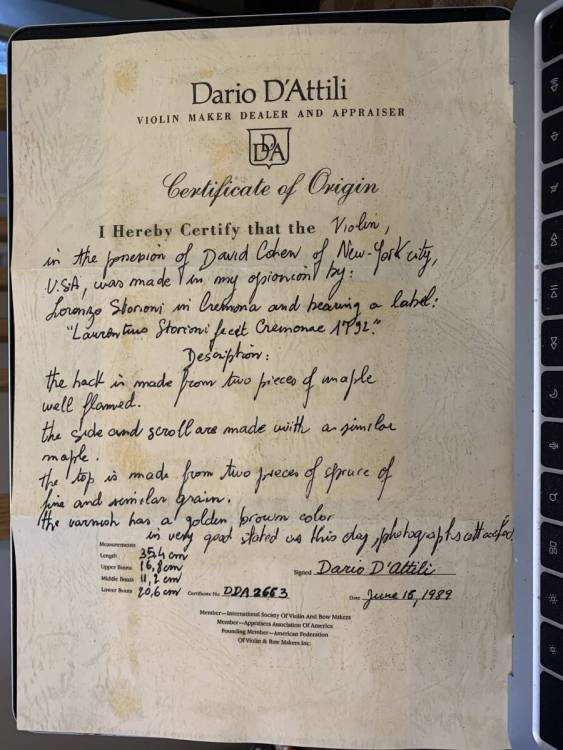 Dario D'Attili
VIOLIN MAKER DEALER AND APPRAISER
DDA
Certificate of Origin
I Hereby Certify that the Violin,
in the posesion of David Cohen of New-York city,
U.S.A, was made in my opionion by:
Lorenzo Storioni in Cremona and bearing a label:
"Laurentius Storioni fecit Cremonae 1792."
Description:
the back is made from two pieces of maple
well flamed.
the side and scroll are made with a similar
maple.
the top is made from two pieces of spruce of
fine and similar grain.
the varnish has a golden brown color
in very good stated as this day, photographs attached
Measurements
Length 35,4 cm
Upper Bouts 16,8 cm
Middle Bouts 11,2 cm
Lower Bouts 20,6 cm
Certificate No DDA 2663
Signed Dario D'Attili
Date June 16, 1989
Member—International Society Of Violin And Bow Makers
Member—Appraisers Association Of America
Founding Member—American Federation
Of Violin & Bow Makers Inc.